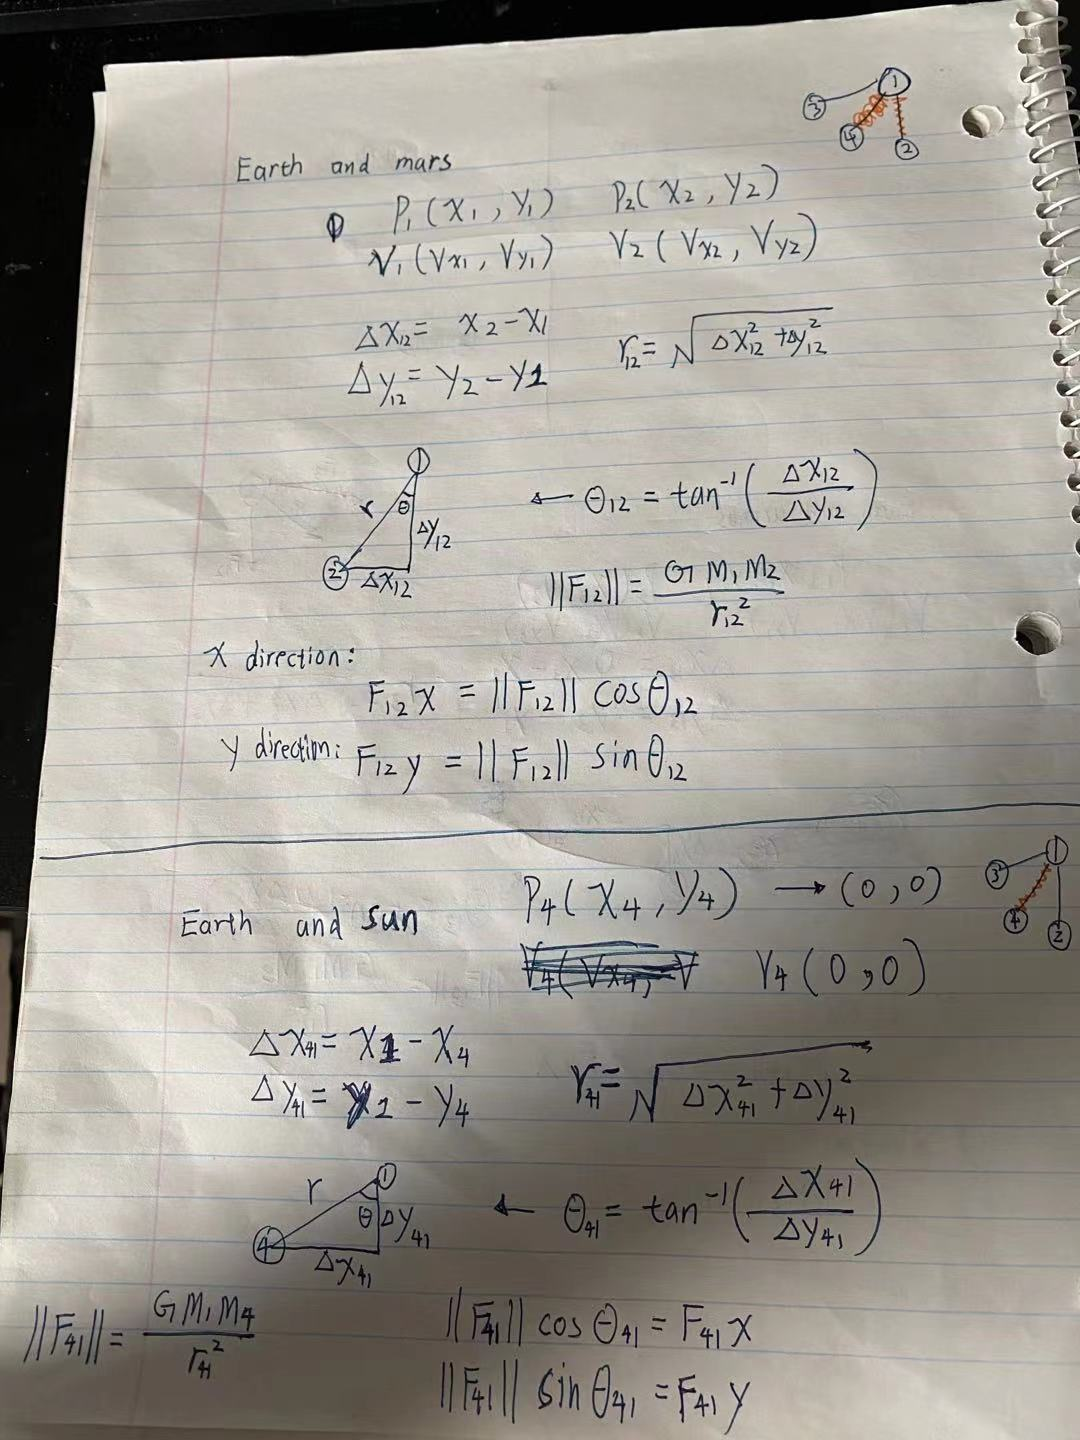 1
3
4
2
Earth and mars
P₁(X₁, Y₁) P₂(X₂, Y₂)
V₁(Vx₁, Vy₁) V₂(Vx₂, Vy₂)
ΔX₁₂ = X₂ - X₁
r₁₂ = √(ΔX₁₂² + Δy₁₂²)
Δy₁₂ = Y₂ - Y1
1
r θ Δy₁₂
2 ΔX₁₂
← θ₁₂ = tan⁻¹(ΔX₁₂/ΔY₁₂)
||F₁₂|| = G M₁ M₂ / r₁₂²
X direction:
F₁₂x = ||F₁₂|| cosθ₁₂
Y direction: F₁₂y = ||F₁₂|| sinθ₁₂
1
3
4
2
Earth and sun P₄(X₄, Y₄) → (0, 0)
V₄(0, 0)
ΔX₄₁ = X1 - X₄
Δy₄₁ = Y1 - Y₄ r₄₁ = √(ΔX₄₁² + ΔY₄₁²)
1
r θ ΔY₄₁
4 ΔX₄₁
← θ₄₁ = tan⁻¹(ΔX₄₁/ΔY₄₁)
||F₄₁|| = G M₁ M₄ / r₄₁²
||F₄₁|| cos θ₄₁ = F₄₁x
||F₄₁|| sin θ₄₁ = F₄₁y